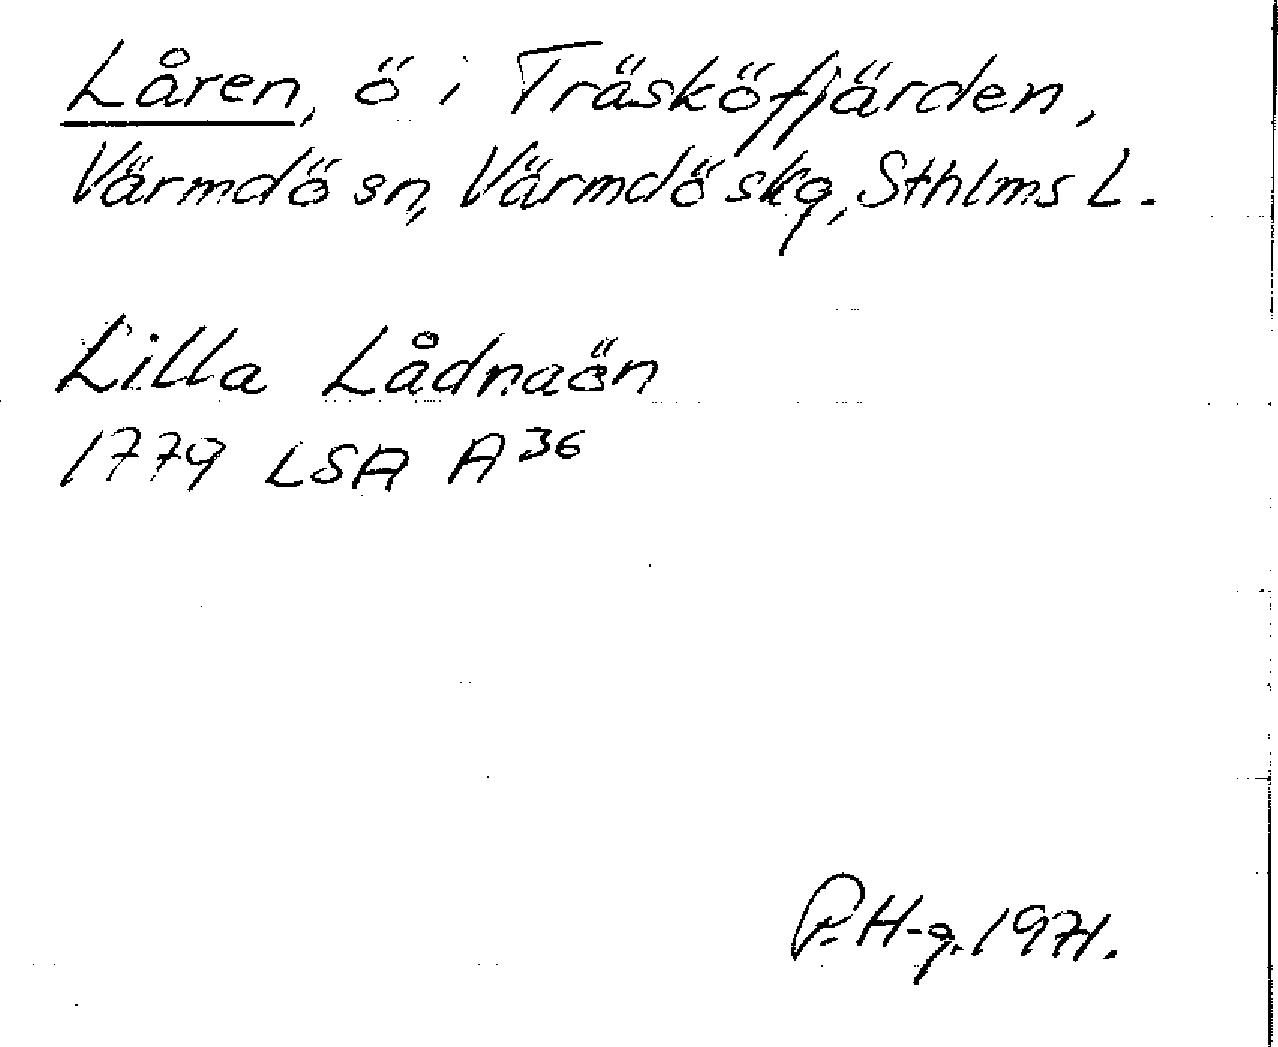 Låren, ö i Träsköfjärden,
Värmdö sn, Värmdö skg, Sthlms L.
Lilla Lådnaön
1779 LSA A36
P.H-g. 1971.